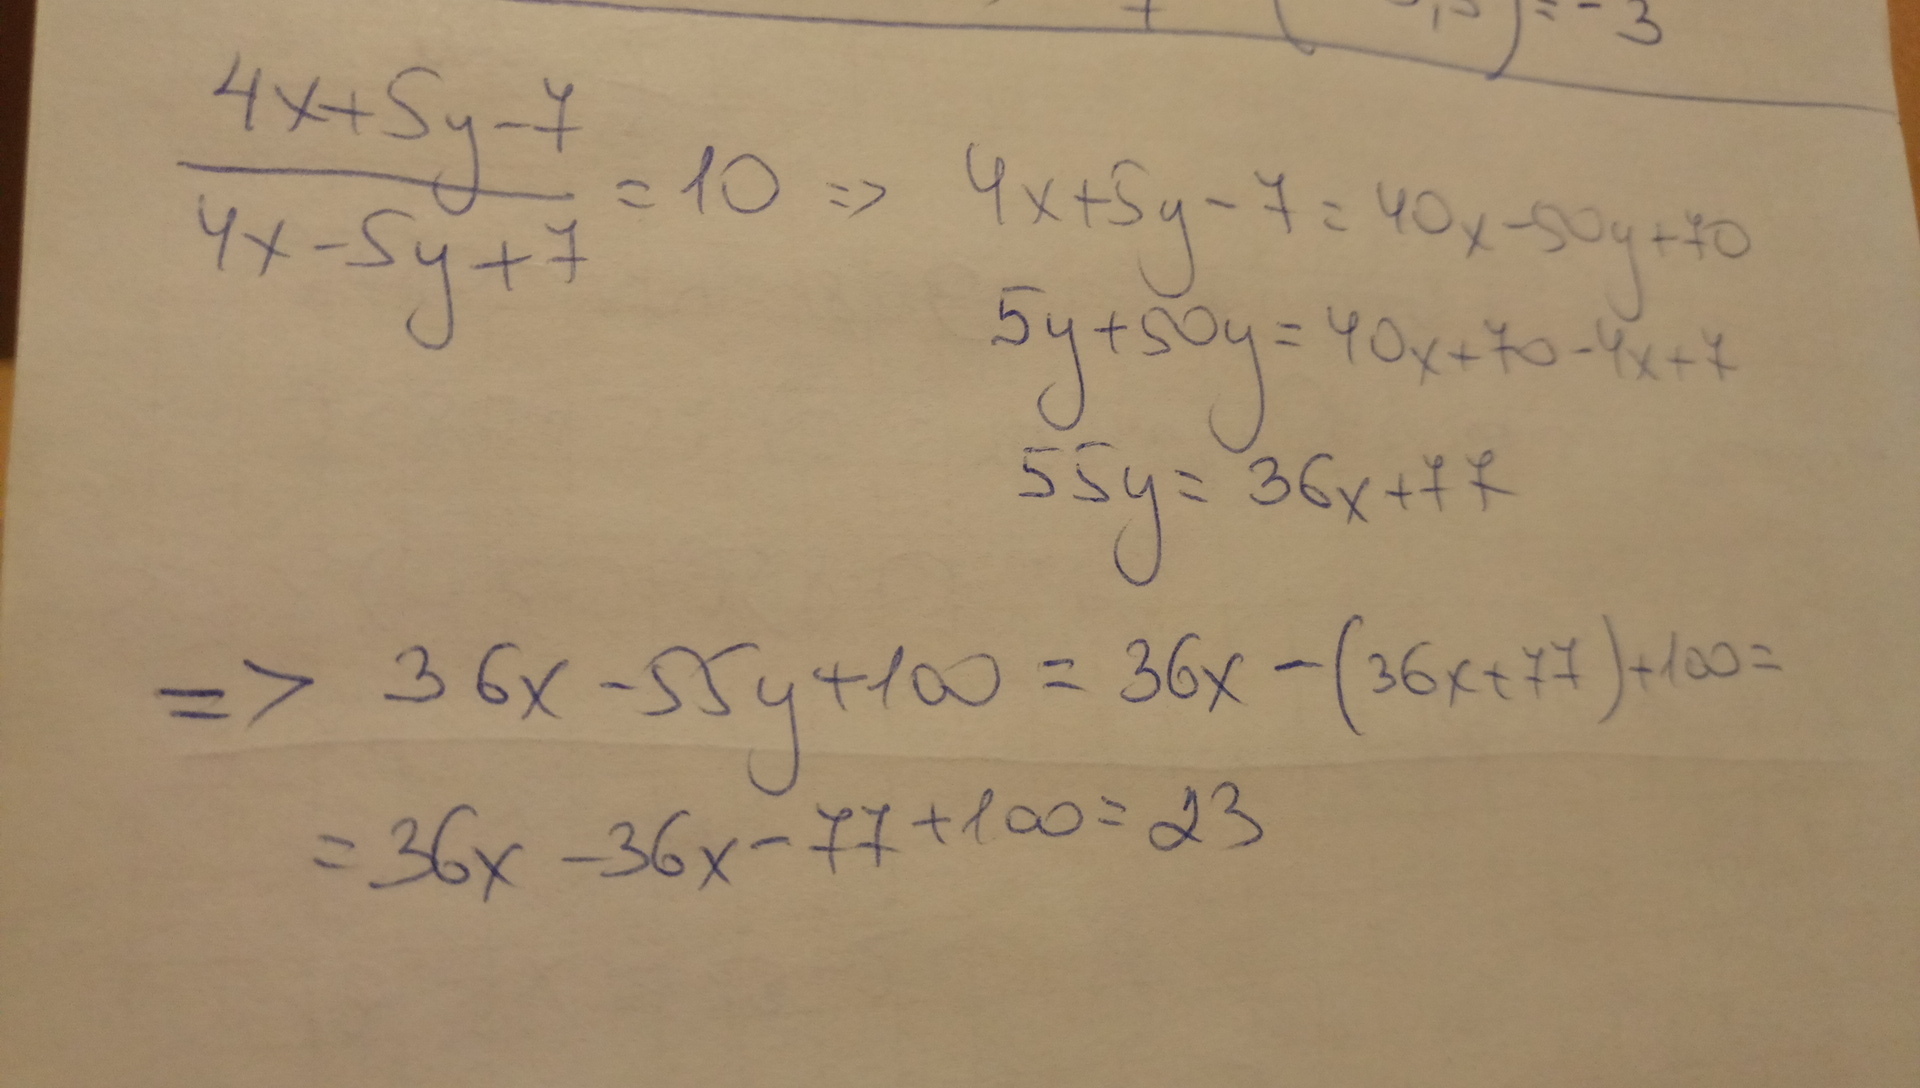 ) = -3
4x+5y-7
4x-5y+7
=10 => 4x+5y-7=40x-50y+70
5y+50y=40x+70-4x+7
55y=36x+77
=> 36x-55y+100=36x-(36x+77)+100=
=36x-36x-77+100=23